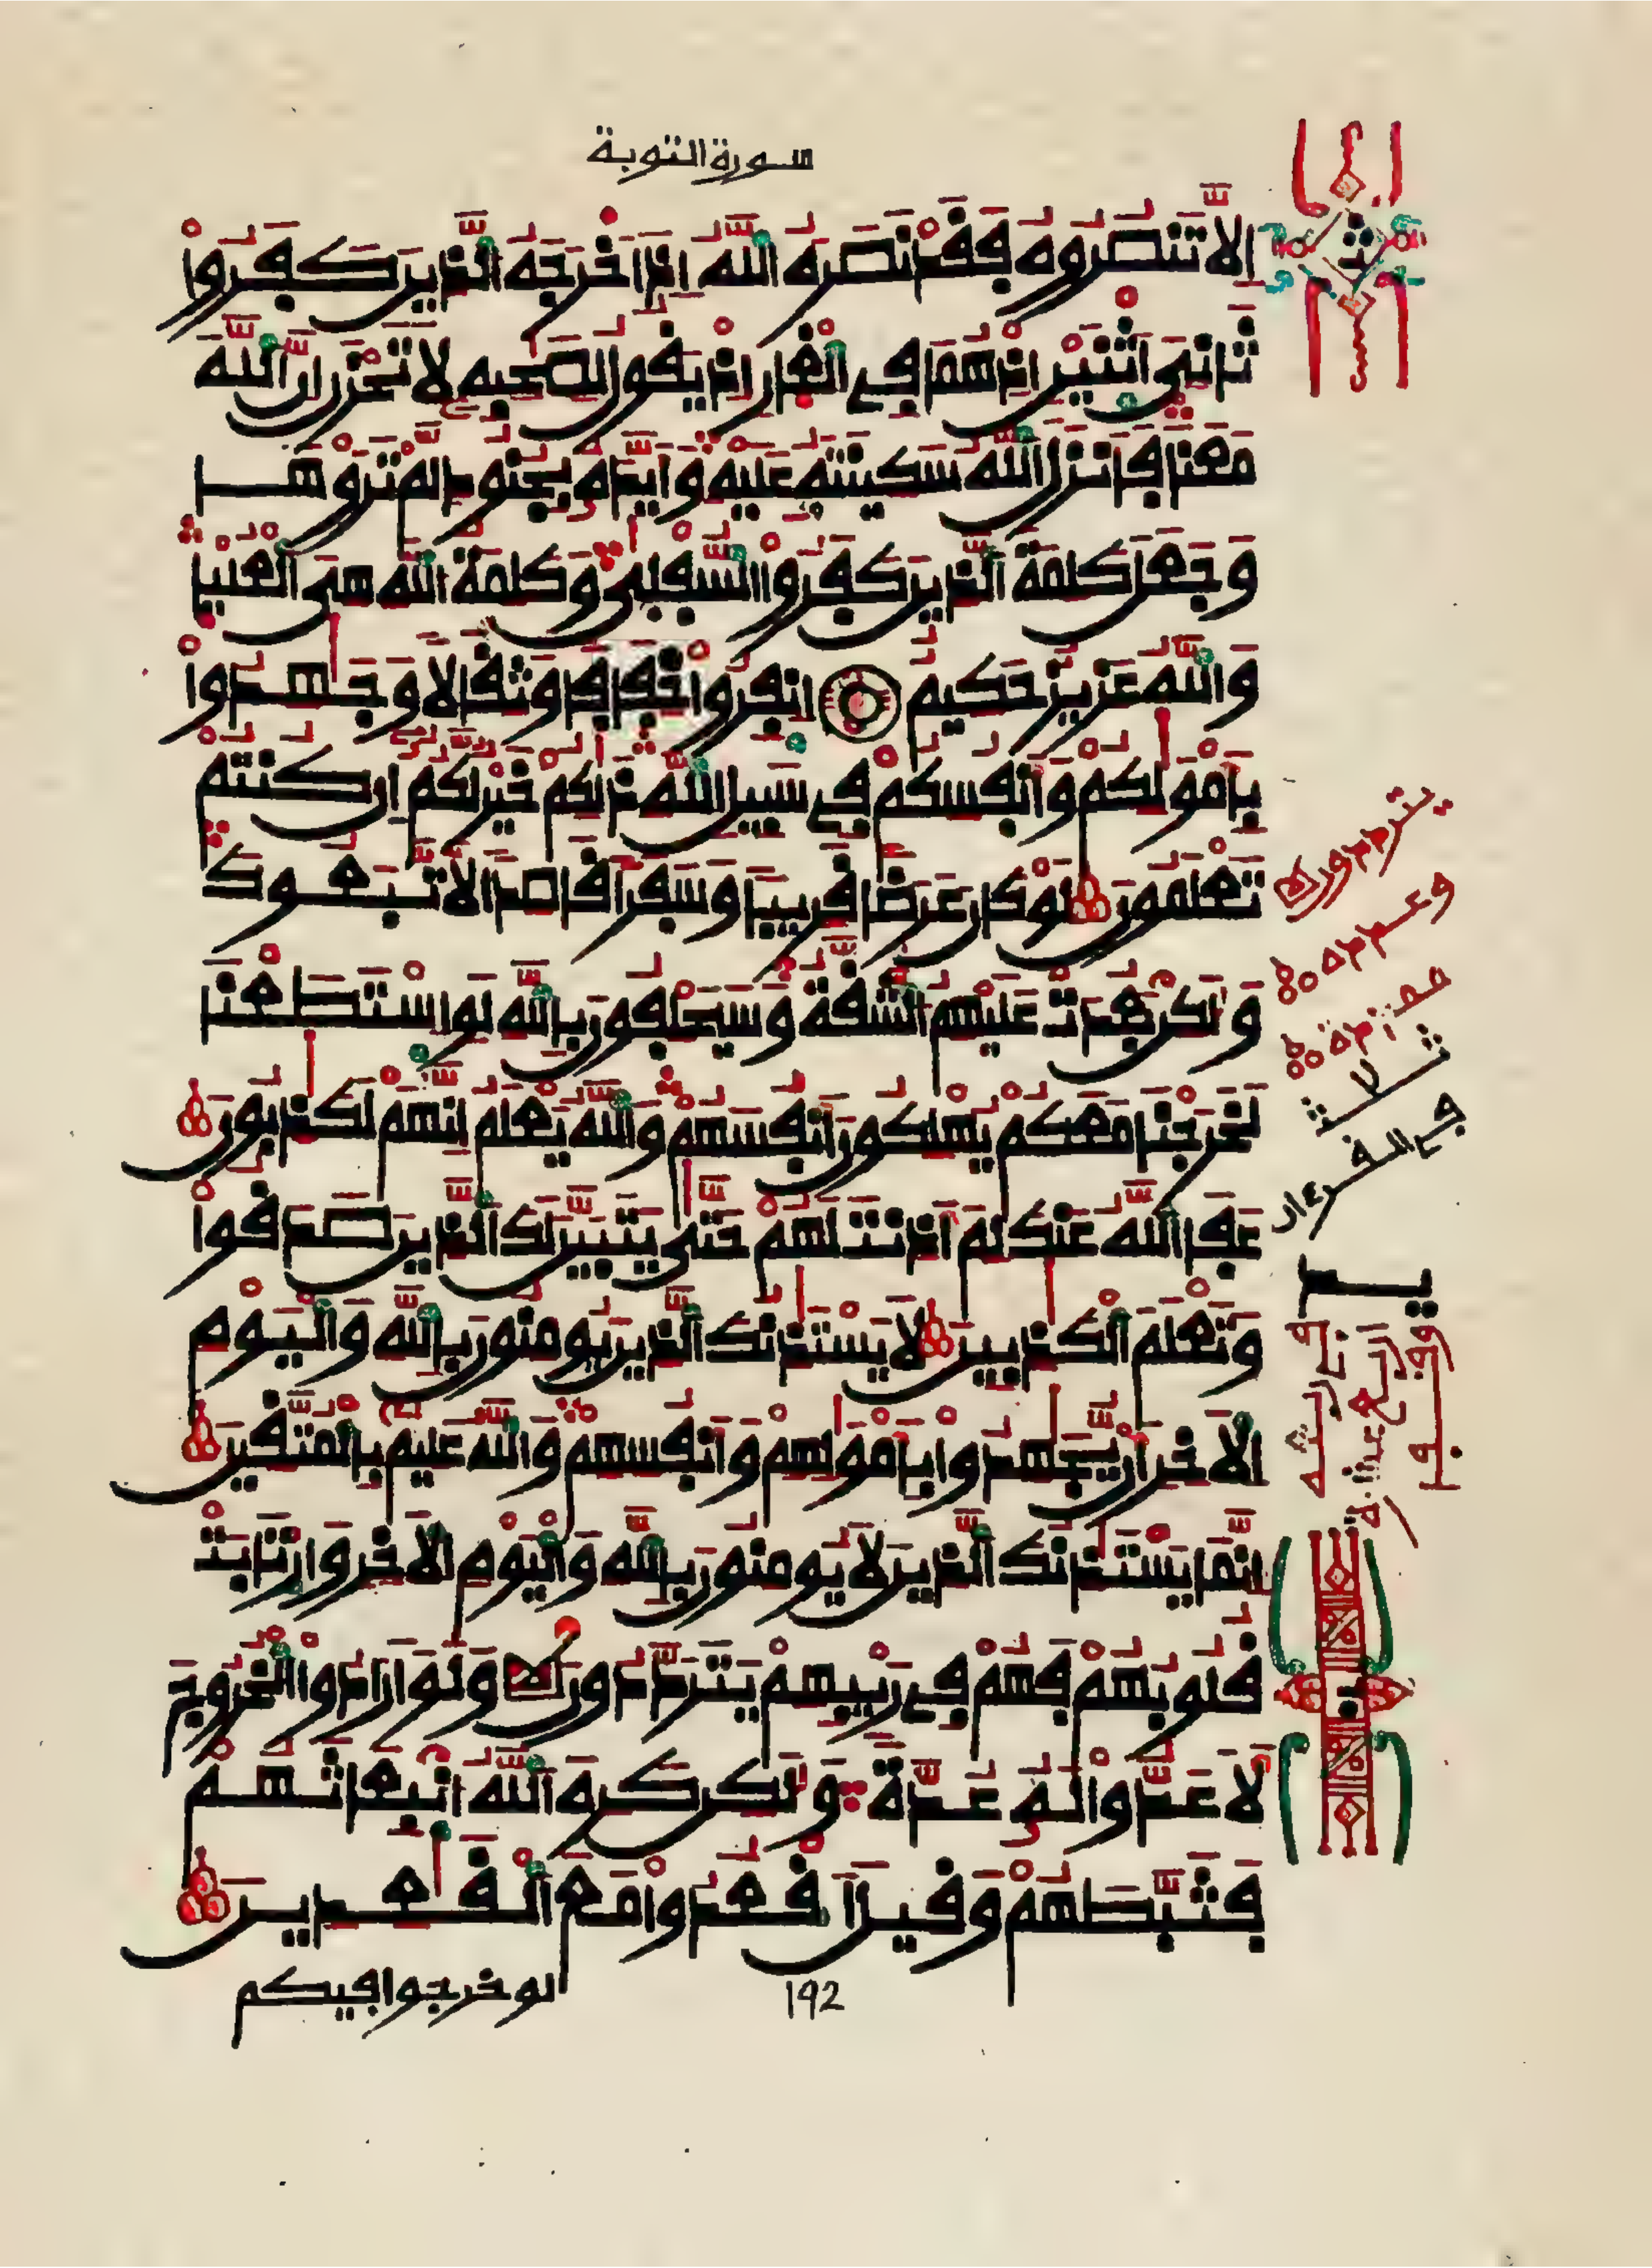 سورة التوبة
اِلَّا تَنصُرُوهُ فَقَدْ نَصَرَهُ اللَّهُ إِذَ اَخْرَجَهُ الَّذِينَ كَفَرُواْ
ثَانِيَ اَثْنَيْنِ إِذْ هُمَا فِي الْغَارِ إِذْ يَقُولُ لِصَحِبِهِ لَا تَحْزَنِ انَّ اللَّهَ
مَعَنَا فَأَنزَلَ اللَّهُ سَكِينَتَهُ عَلَيْهِ وَأَيَّدَهُ بِجُنُودٍ لَّمْ تَرَوْهَا
وَجَعَلَ كَلِمَةَ الَّذِينَ كَفَرُواْ السُّفْلَى وَكَلِمَةُ اللَّهِ هِيَ الْعُلْيَا
وَاللَّهُ عَزِيزٌ حَكِيمٌ انفِرُواْ خِفَافًا وَثِقَالًا وَجَهِدُواْ
بِأَمْوَلِكُمْ وَأَنفُسِكُمْ فِي سَبِيلِ اللَّهِ ذَلِكُمْ خَيْرٌ لَّكُمُ إِن كُنتُمْ
تَعْلَمُونَ لَوْ كَانَ عَرَضًا قَرِيبًا وَسَفَرًا قَاصِدًا لَّاتَّبَعُوكَ
وَلَكِن بَعُدَتْ عَلَيْهِمُ الشُّقَّةُ وَسَيَحْلِفُونَ بِاللَّهِ لَوِ اسْتَطَعْنَا
لَخَرَجْنَا مَعَكُمْ يُهْلِكُونَ أَنفُسَهُمْ وَاللَّهُ يَعْلَمُ إِنَّهُمْ لَكَذِبُونَ
عَفَا اللَّهُ عَنكَ لِمَ أَذِنتَ لَهُمْ حَتَّى يَتَبَيَّنَ لَكَ الَّذِينَ صَدَقُواْ
وَتَعْلَمَ الْكَذِبِينَ لَا يَسْتَذِنُكَ الَّذِينَ يُومِنُونَ بِاللَّهِ وَالْيَوْمِ
الَاخِرِ أَنْ يُّجَهِدُواْ بِأَمْوَلِهِمْ وَأَنفُسِهِمْ وَاللَّهُ عَلِيمٌ بِالْمُتَّقِينَ
إِنَّمَا يَسْتَذِنُكَ الَّذِينَ لَا يُومِنُونَ بِاللَّهِ وَالْيَوْمِ الَاخِرِ وَارْتَابَتْ
قُلُوبُهُمْ فَهُمْ فِي رَيْبِهِمْ يَتَرَدَّدُونَ وَلَوَ ارَادُواْ الْخُرُوجَ
لَأَعَدُّواْ لَهُ عُدَّةً وَلَكِن كَرِهَ اللَّهُ انبِعَاثَهُمْ
فَثَبَّطَهُمْ وَقِيلَ اَقْعُدُواْ مَعَ الْقَعِدِينَ
لو خرجوا فيكم
192
ث
يترددون
ثلاث
في القرءان